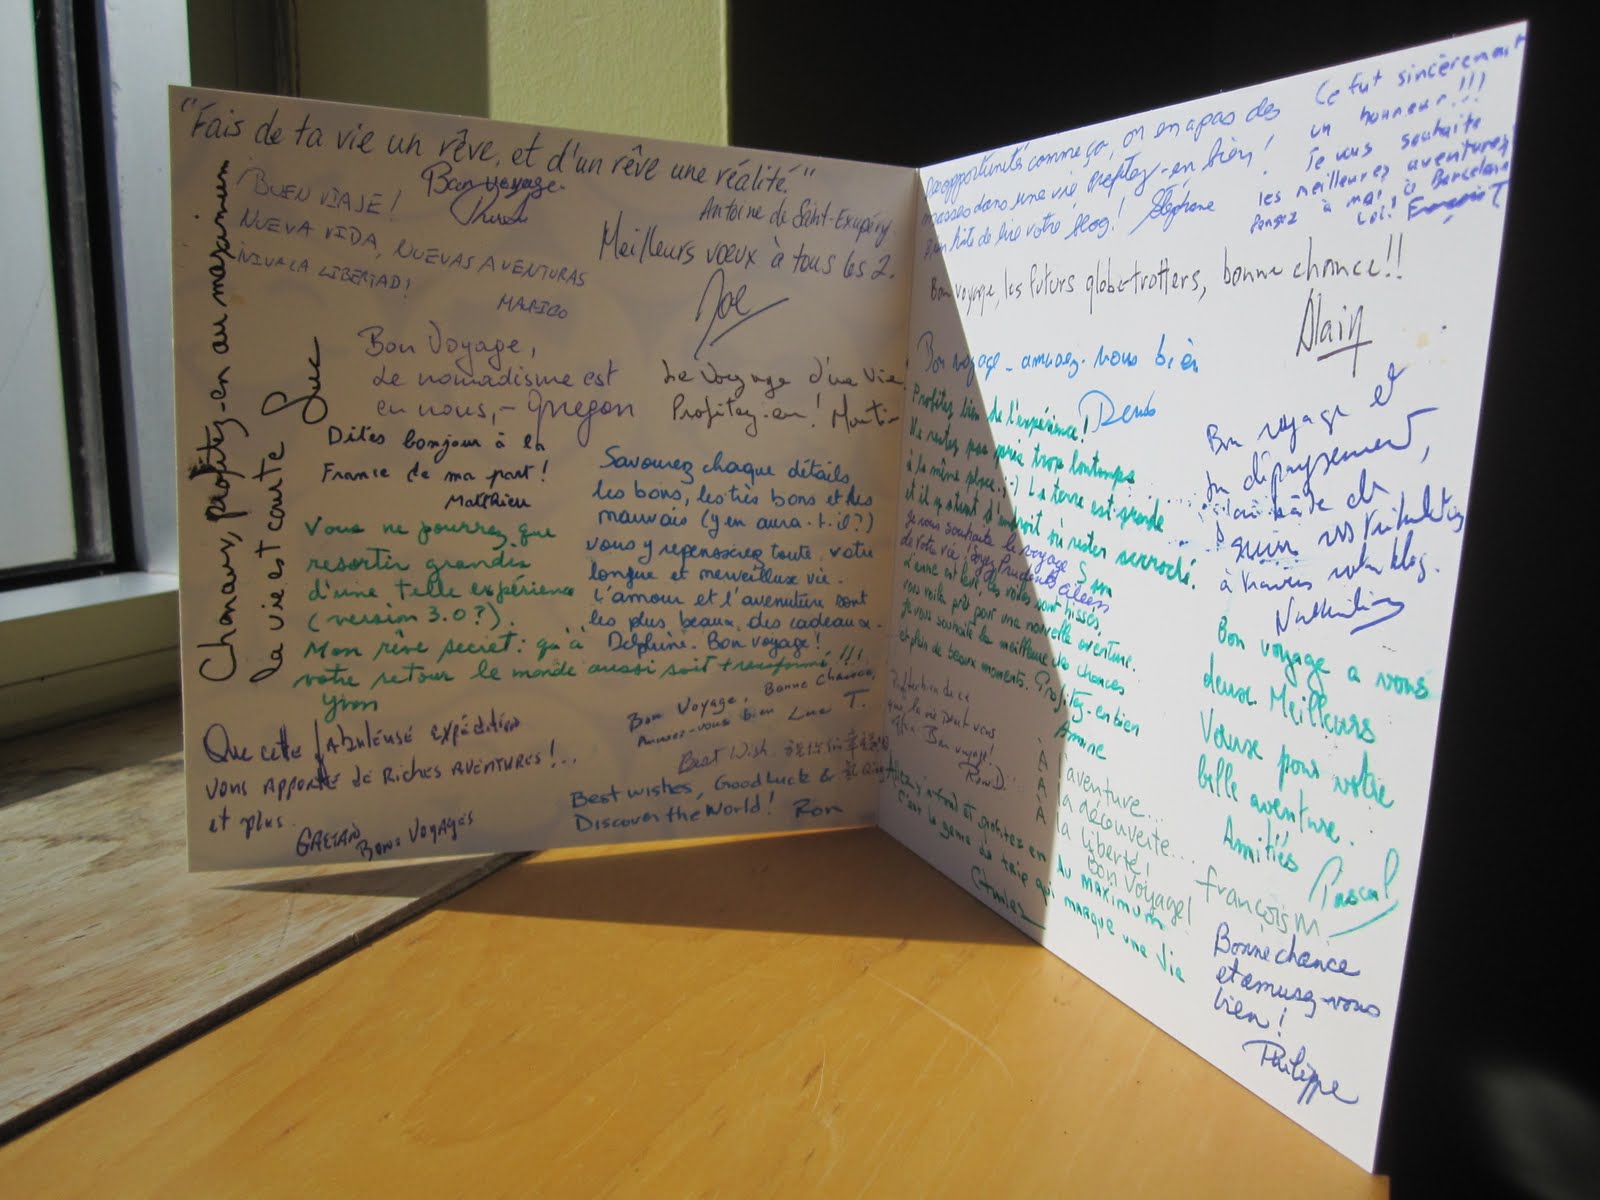 "Fais de ta vie un rêve, et d'un rêve une réalité."
Antoine de Saint-Exupéry
Chanceux, profitez-en au maximum
la vie est courte Luc
¡BUEN VIAJE!
NUEVA VIDA, NUEVAS AVENTURAS
VIVA LA LIBERTAD!
MARICO
Bon voyage
Meilleurs vœux à tous les 2.
Joe
Bon Voyage,
Le nomadisme est
en nous, - Gregon
Le Voyage d'une Vie.
Profitez-en! Martin
Dites bonjour à la
France de ma part!
Matthieu
Savourez chaque détails,
les bons, les très bons et les
mauvais (y en aura-t-il?)
vous y repenserez toute votre
longue et merveilleux vie.
L'amour et l'aventure sont
les plus beaux des cadeaux.
Delphine. Bon voyage!
Vous ne pourrez que
ressortir grandis
d'une telle expérience
(version 3.0?).
Mon rêve secret: qu'à
votre retour le monde aussi soit transformé!!!
Yvon
Bon Voyage, Bonne Chance,
Amusez-vous bien Luc T.
Que cette fabuleuse expédition
vous apporte de riches aventures!..
et plus.
GAETAN
Bons Voyages
Best Wish.
Best wishes, Good Luck &
Discover the World! Ron
opportunités comme ça, on en a pas des
masses dans une vie, profitez-en bien!
hâte de lire votre blog! Stéphane
Ce fut sincèrement
un honneur!!!
Je vous souhaite
les meilleures aventures
Pensez à moi à Barcelone
Lol! François T
Bon voyage, les futurs globe-trotters, bonne chance!!
Alain
Bon voyage - amusez-vous bien
Denis
Profitez bien de l'expérience!
Ne restez pas pris trop longtemps
à la même place. ;-) La terre est grande
et il y a tant d'endroit où rester accroché.
Je vous souhaite le voyage
de votre vie! Soyez prudents
L'encre est levée, les voiles sont hissées,
vous voilà prêt pour une nouvelle aventure.
Je vous souhaite la meilleure des chances
et plein de beaux moments. Profitez-en bien
Bon voyage et
bon dépaysement,
j'ai hâte de
suivre vos
à travers votre blog.
Profiter de ce
que la vie peut vous
offrir. Bon voyage!
À l'aventure...
À la découverte...
À la liberté!
Bon Voyage!
François M.
Bon voyage a vous
deux Meilleurs
Vœux pour votre
belle aventure.
Amitiés
Pascal
profitez en
AU MAXIMUM
C'est le genre de trip qui marque une vie
Charles
Bonne chance
et amusez-vous
bien!
Philippe